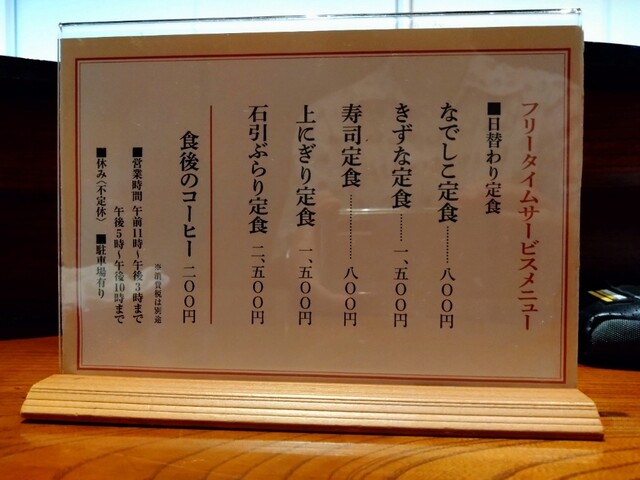 フリータイムサービスメニュー
■日替わり定食
なでしこ定食………八〇〇円
きずな定食……一、五〇〇円
寿司定食………………八〇〇円
上にぎり定食 一、五〇〇円
石引ぶらり定食 二、五〇〇円
食後のコーヒー 二〇〇円
※消費税は別途
■営業時間 午前11時〜午後3時まで
午後5時〜午後10時まで
■休み〈不定休〉 ■駐車場有り